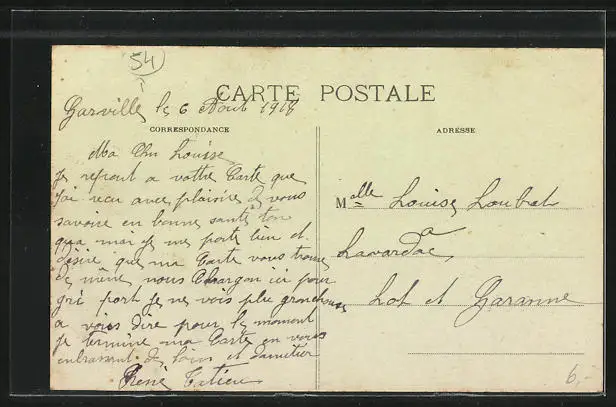 54
CARTE POSTALE
Garville le 6 Aout 1918
CORRESPONDANCE
ADRESSE
Ma Cher Louise
Je repont a vottre Carte que
j'ai recu avec plaisire de vous
savoire en bonne santé ton
qua moi je me porte bien et
désire que ma Carte vous trouve
de même nous Chargon ici pour
gri port je ne vois plu grandchause
a vous dire pour le moment
je termine ma Carte en vous
enbrassent de loins et damitier
René
Melle Louise Loubat
Lavardac
Lot et Garonne
6,-